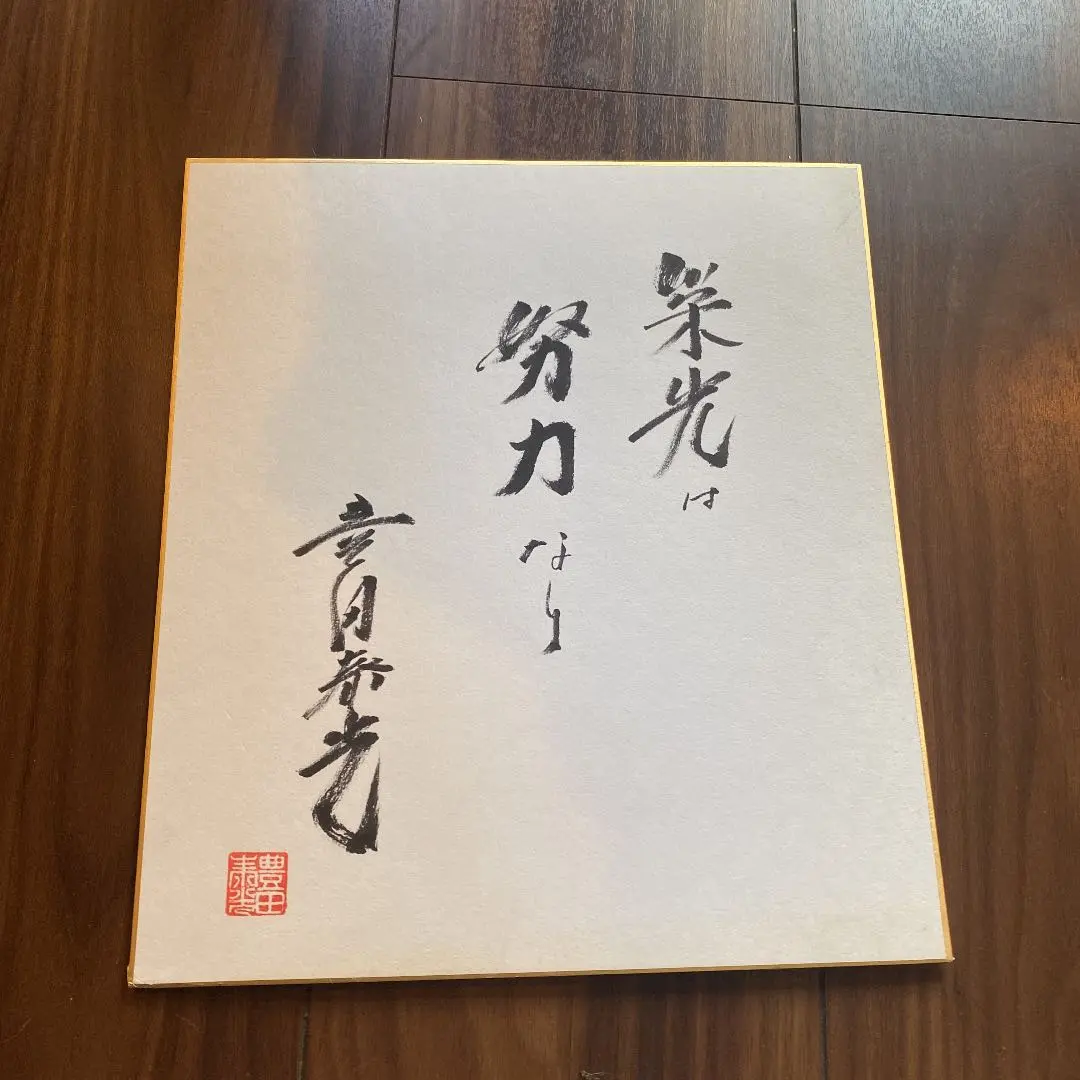 栄光は
努力なり
豊田泰光
豊田
泰光